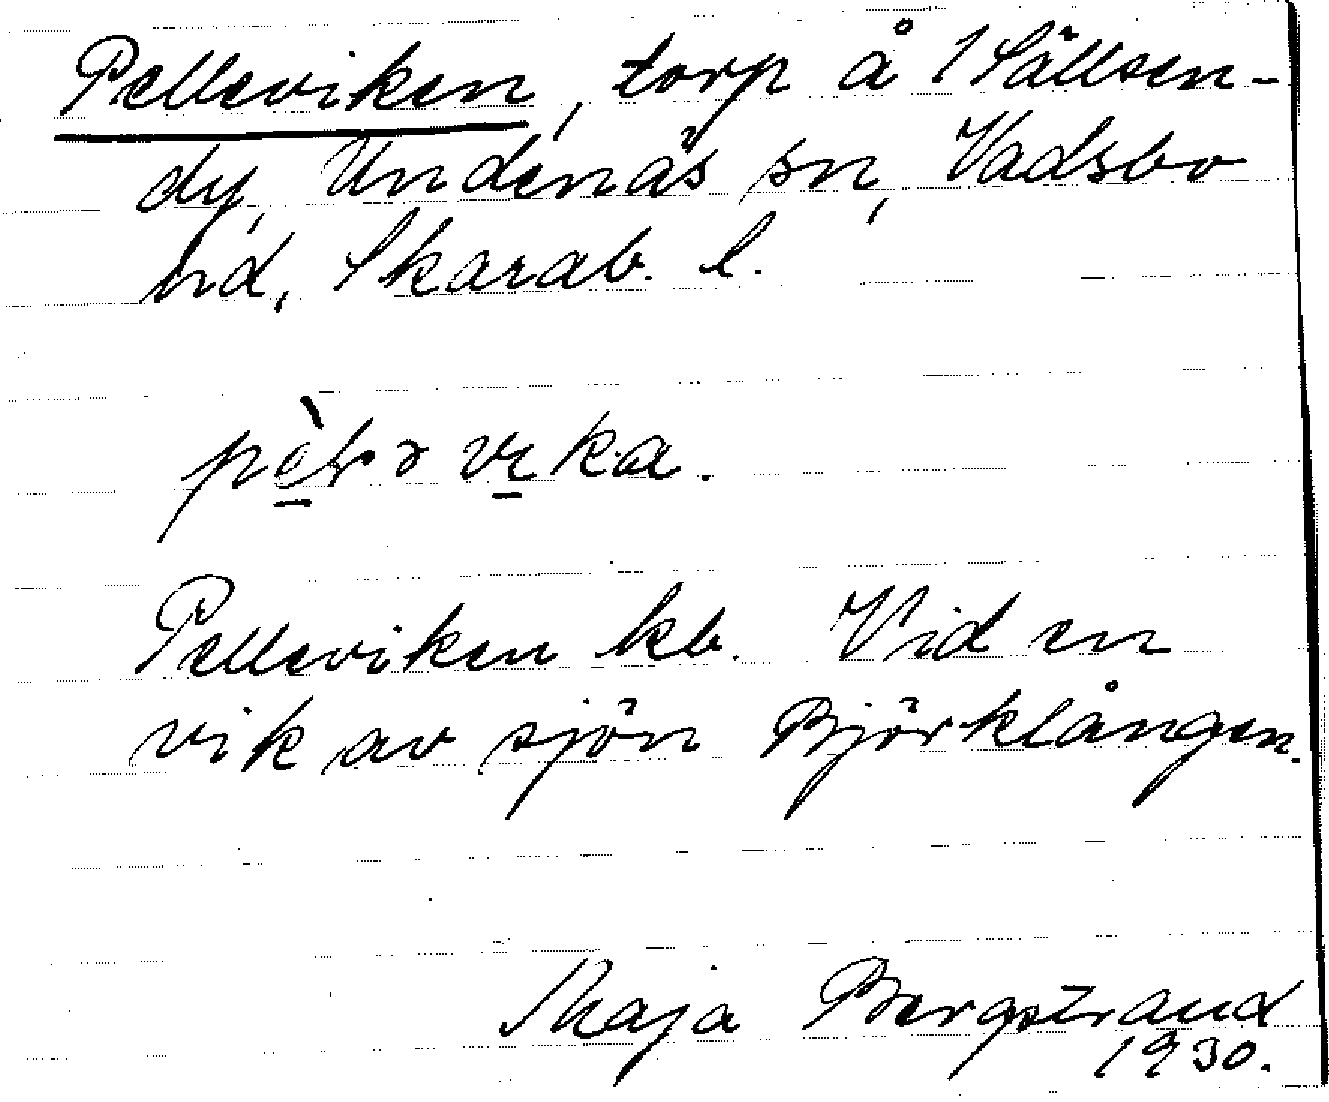 Pelleviken, torp å 1 Sällsen-
dy, Undenäs sn, Vadsbo
hd, Skarab. l.
Pelleviken kb. Vid en
vik av sjön Björklången.
Maja Bergstrand
1930.